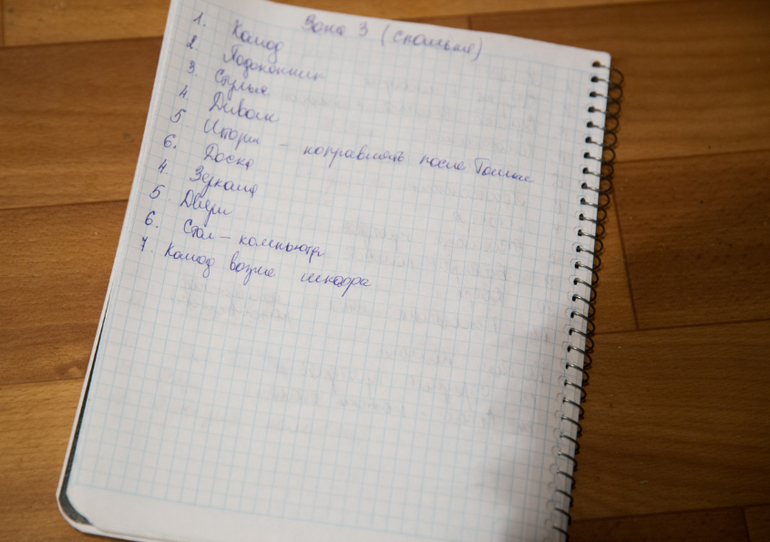 Зона 3 (спальня)
1. Комод
2. Подоконник
3. Стулья
4. Диван
5. Шторы – поправлять после
6. Доска
4. Зеркала
5. Двери
6. Стол – компьютер
7. Комод возле шкафа